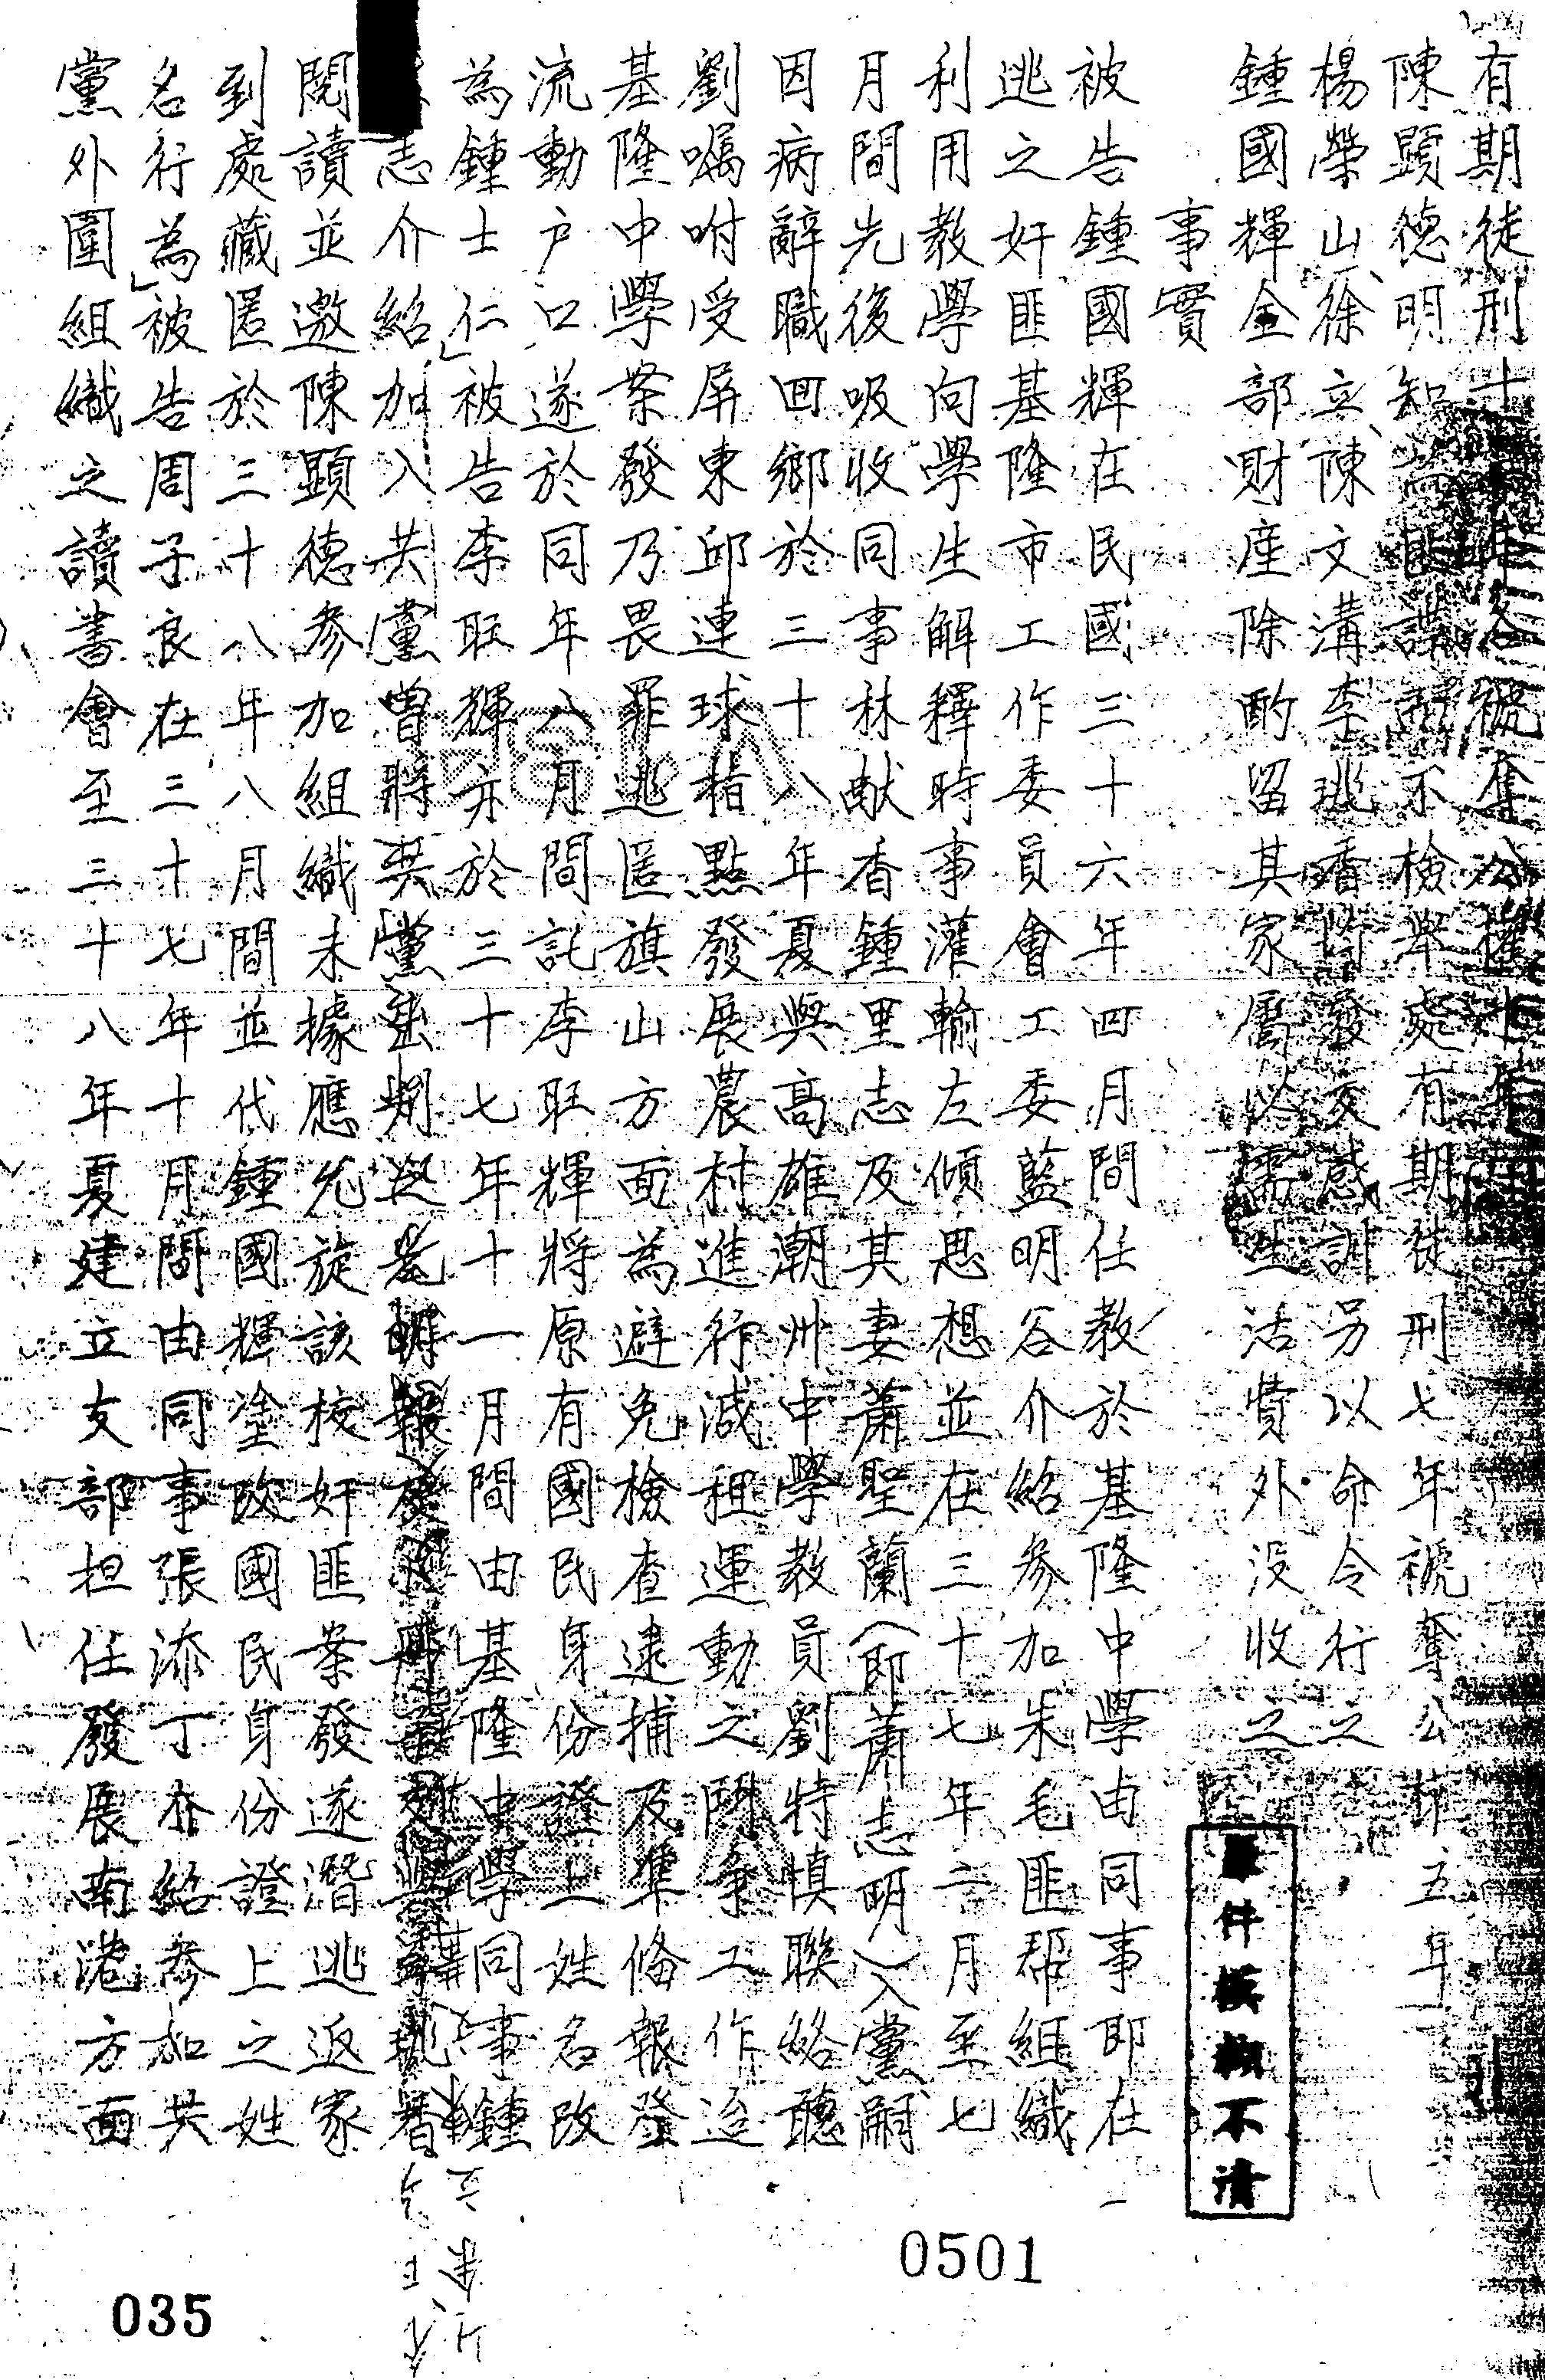 有期徒刑十年各褫奪公權十年
陳顯德明知為匪諜而不檢舉處有期徒刑七年褫奪公權五年
楊榮山徐立陳文溝李珧香附發交感訓另以命令行之
鍾國輝全部財産除酌留其家屬必需生活費外没收之
事實
被告鍾國輝在民國三十六年四月間任教於基隆中學由同事即在
逃之奸匪基隆市工作委員會工委藍明谷介紹參加朱毛匪幫組織
利用教學向學生解釋時事灌輸左傾思想並在三十七年六月至七
月間先後吸收同事林献香鍾里志及其妻蕭聖蘭(即蕭志明)入黨嗣
因病辭職回鄉於三十八年夏與高雄潮州中學教員劉特慎聯絡聽
劉囑咐受屏東邱連球指點發展農村進行減租運動之鬥爭工作迨
基隆中學案發乃畏罪逃匿旗山方面為避免檢查逮捕及準備報登
流動户口遂於同年八月間託李旺輝將原有國民身份證上姓名改
為鍾士仁」被告李旺輝亦於三十七年十一月間由基隆中學同事鍾
志介紹加入共黨曾將共黨
閱讀並邀陳顯德參加組織未據應允旋該校奸匪案發遂潛逃返家
到處藏匿於三十八年八月間並代鍾國輝塗改國民身份證上之姓
名行為」被告周子良在三十七年十月間由同事張添丁介紹參加共
黨外圍組織之讀書會至三十八年夏建立支部担任發展南港方面
本件模糊不清
0501
035